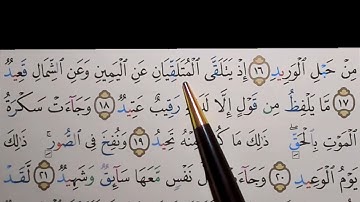 مِنْ حَبْلِ ٱلْوَرِيدِ ١٦ إِذْ يَتَلَقَّى ٱلْمُتَلَقِّيَانِ عَنِ ٱلْيَمِينِ وَعَنِ ٱلشِّمَالِ قَعِيدٌ
١٧ مَّا يَلْفِظُ مِن قَوْلٍ إِلَّا رَقِيبٌ عَتِيدٌ ١٨ وَجَآءَتْ سَكْرَةُ
ٱلْمَوْتِ بِٱلْحَقِّ ۖ ذَٰلِكَ مَا تَحِيدُ ١٩ وَنُفِخَ فِي ٱلصُّورِ ۚ ذَٰلِكَ
يَوْمُ ٱلْوَعِيدِ ٢٠ نَفْسٍ مَّعَهَا سَآئِقٌ وَشَهِيدٌ ٢١ لَّقَدْ